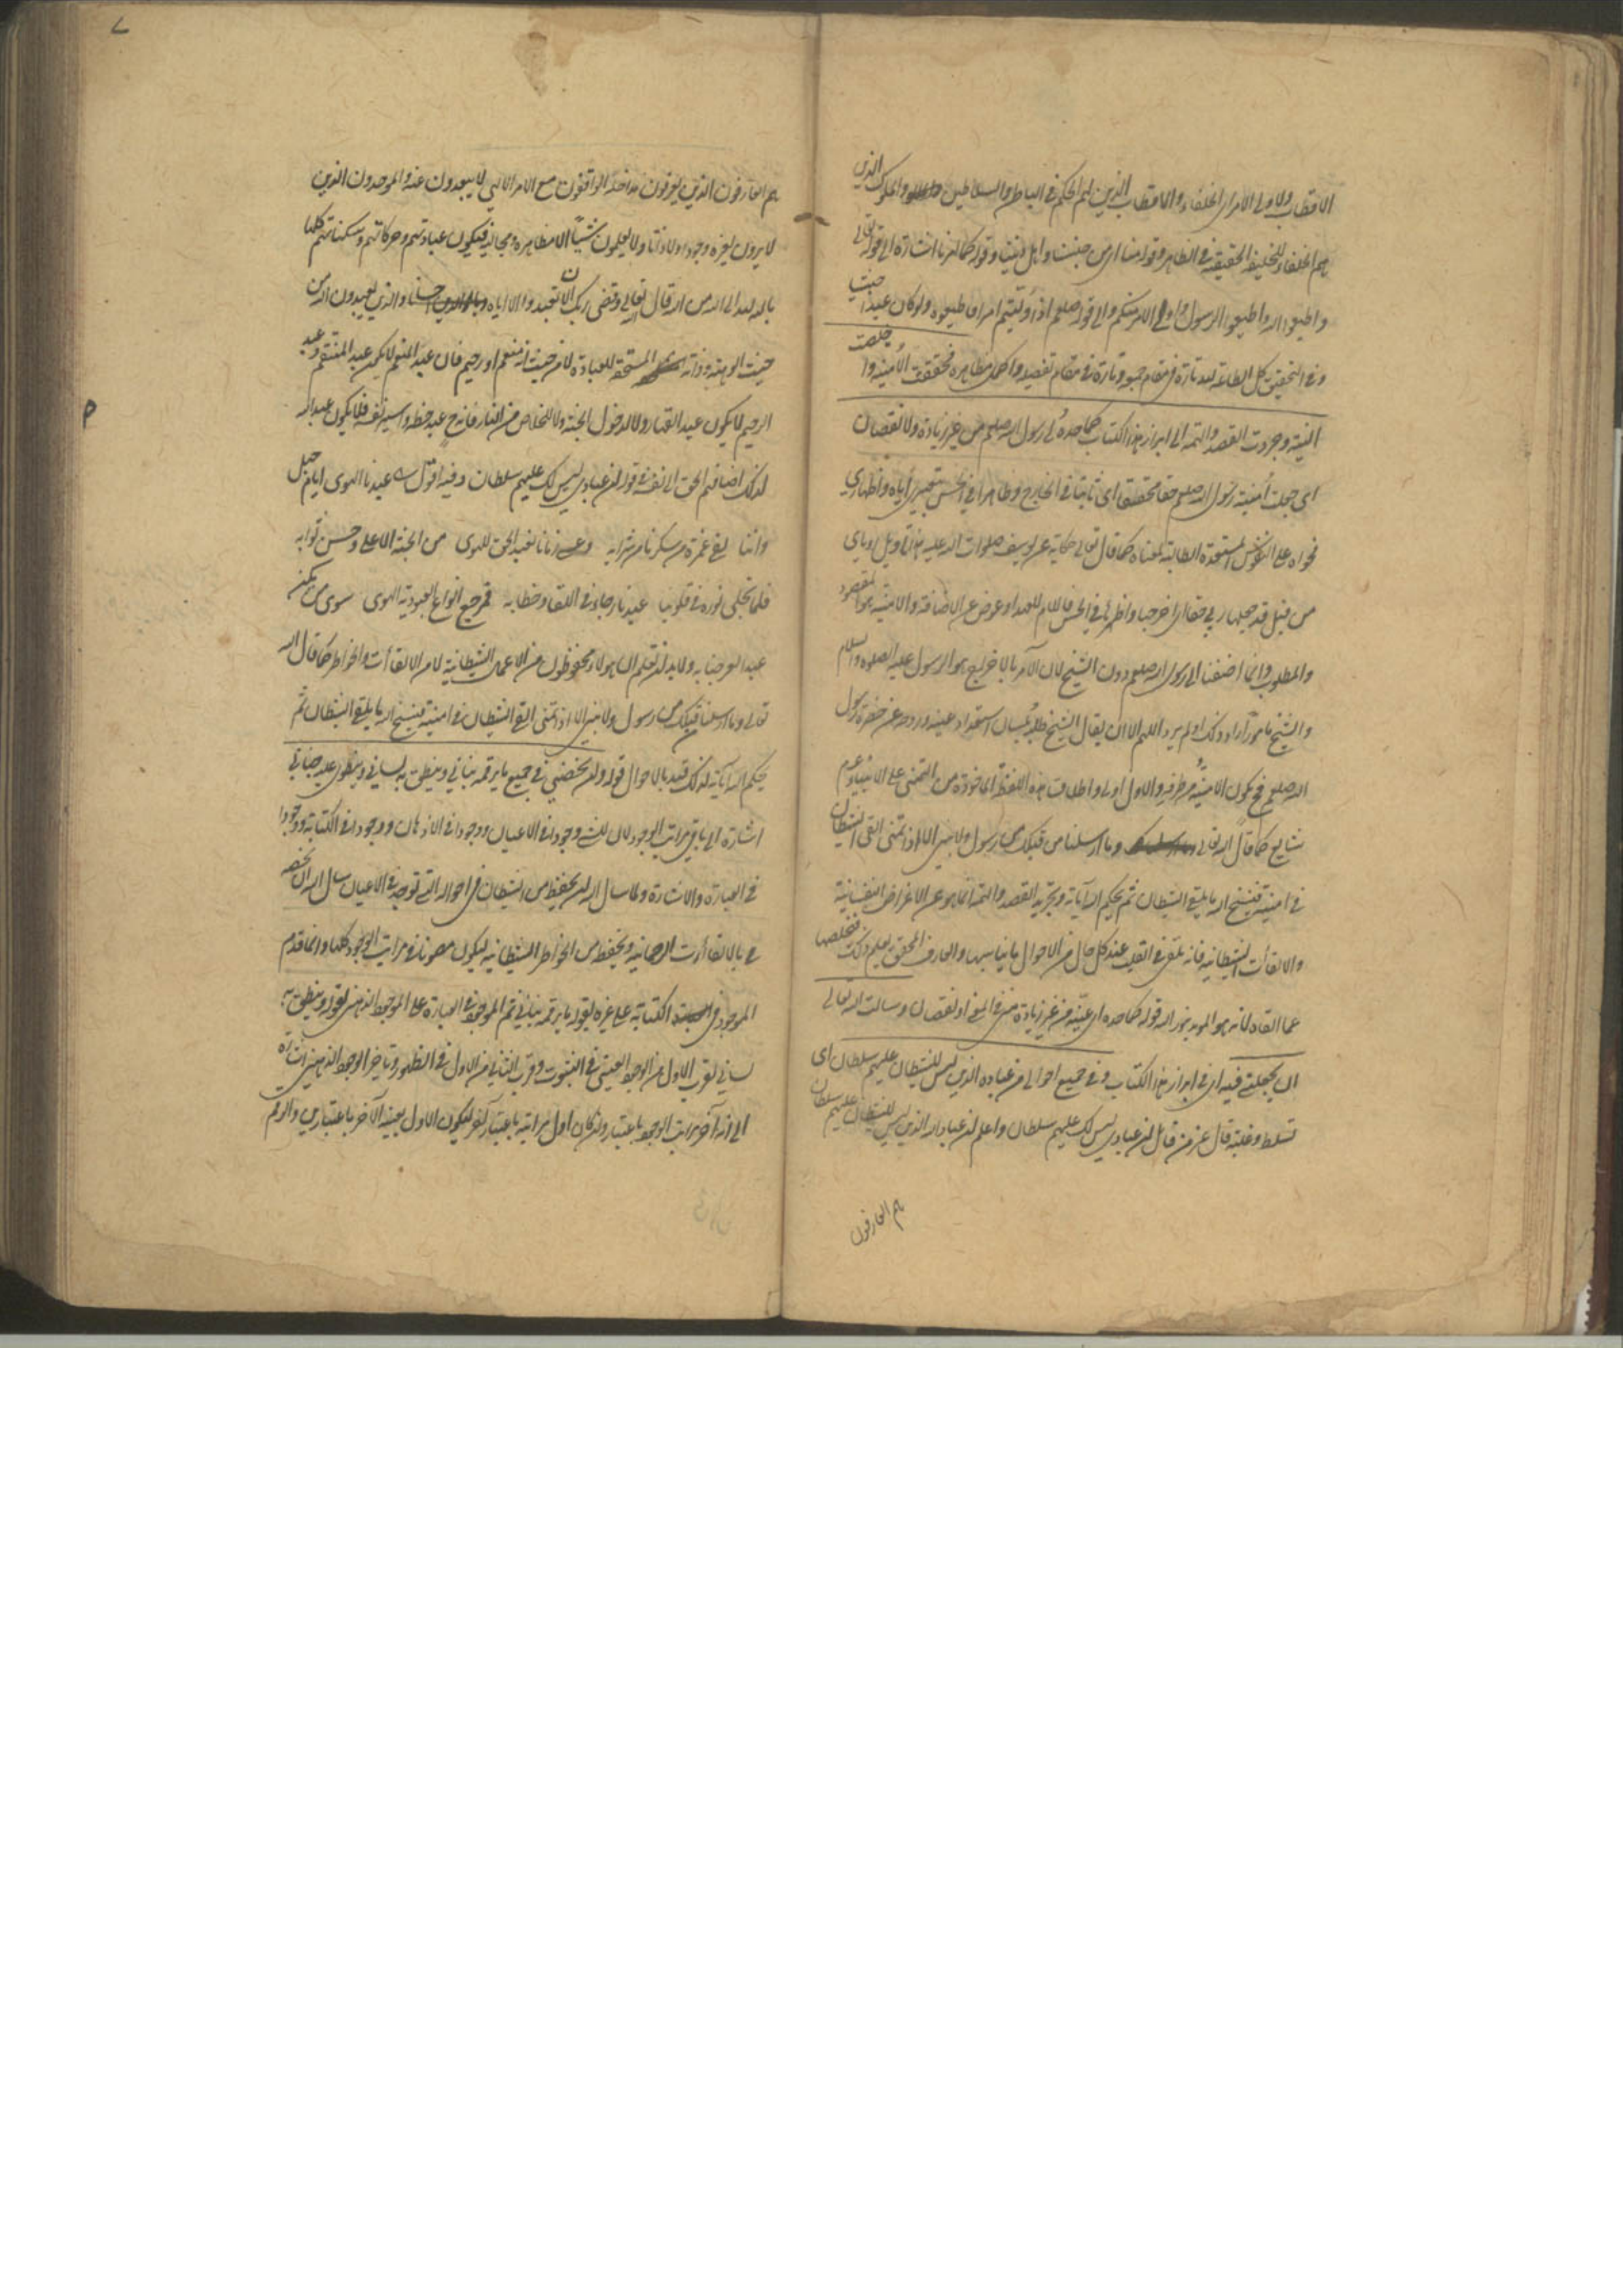 الاقطاب ولاولى الامر اى الخلفاء والاقطاب الذين لهم الحكم فى الباطن والسلاطين والملوك الذين
هم الخلفاء للخليفة الحقيقية فى الظاهر وقوله منا اى من جنسنا واهل ديننا وقوله كما امرنا اشارة الى قوله تعالى
واطيعوا الله واطيعوا الرسول واولى الامر منكم والى قوله صلعم اذا وليتم امرا فاطيعوه ولو كان عبدا حبشيا
وفى التحقيق كل الطاعة لله تارة فى مقام جمعه وتارة فى مقام تفصيله واكمل مظاهره فحققت الامنية واخلصت
النية وجردت القصد والهمة الى ابراز هذا الكتاب كما حده لى رسول الله صلعم من غير زيادة ولا نقصان
اى جعلت امنية رسول الله صلعم حقا محققا اى ثابتا فى الخارج وظاهرا فى الحس بتعبيرى اياه واظهارى
فحواه على النفوس المستعدة الطالبة لمعناه كما قال تعالى حكاية عن يوسف صلوات الله عليه هذا تاويل روياى
من قبل قد جعلها ربى حقا اى اخرجها واظهرها فى الحس فاللام للعهد او عوض عن الاضافة والامنية هو المقصود
والمطلوب وانما اضفنا الى رسول الله صلعم دون الشيخ لان الآمر بالاخراج هو الرسول عليه الصلوة والسلام
والشيخ مامور اراد ذلك او لم يرد اللهم الا ان يقال الشيخ طلبه بلسان استعداد عينه وروحه عن حضرة رسول
الله صلعم فح يكون الامنية من طرفه والاول اولى واطلاق هذه اللفظة الماخوذة من التمنى على الانبياء عم
شايع كما قال الله تعالى وما ارسلنا من قبلك من رسول ولا نبى الا اذا تمنى القى الشيطان
فى امنيته فينسخ الله ما يلقى الشيطان ثم يحكم الله آياته وتجريد القصد والهمة انما هو عن الاغراض النفسانية
والالقاءات الشيطانية فانه يلقى فى القلب عند كل حال من الاحوال ما يناسبها والعارف المحقق يعلم ذلك فيخلصها
عما القاه لانه هو المويد بنور الله قوله كما حده اى عينه من غير زيادة منى فى المعنى او نقصان وسالت الله تعالى
ان يجعلنى فيه اى فى ابراز هذا الكتاب وفى جميع احوالى من عباده الذين ليس للشيطان عليهم سلطان اى
تسلط وغلبة قال عز من قائل ان عبادى ليس لك عليهم سلطان واعلم ان عباد الله الذين ليس للشيطان عليهم سلطان
هم العارفون
هم العارفون الذين يعرفون مداخله الواقفون مع الامر الالهى لا يبعدون عنه والموحدون الذين
لا يرون لغيره وجودا ولا ذاتا ولا يعلمون شيئا الا مظاهره ومجاليه فيكون عباداتهم وحركاتهم وسكناتهم كلها
بالله لله الى الله من الله قال الله تعالى وقضى ربك ان لا تعبدوا الا اياه والذين يعبدون الله من
حيث الوهيته وذاته المستحقة للعبادة لا من حيث انه منعم او رحيم فان عبد المنعم لا يكون عبد المنتقم وعبد
الرحيم لا يكون عبد القهار ولا لدخول الجنة ولا للخلاص من النار فانه ح عبد حظه واسير نفسه فلا يكون عبد الله
لذلك اضافهم الحق الى نفسه فى قوله ان عبادى ليس لك عليهم سلطان وفيه اقول عبدنا الهوى ايام جهل
واننا لفى غمرة من سكرنا من شرابه وعشنا زمانا نعبد الحق للهوى من الجنة الاعلى وحسن ثوابه
فلما تجلى نوره فى قلوبنا عبدنا رجاء فى اللقا وخطابه فمرجع انواع العبودية الهوى سوى من يكن
عبدا لعز جنابه ولا بد ان تعلم ان هولاء محفوظون من الاعمال الشيطانية لا من الالقاءات والخواطر كما قال الله
تعالى وما ارسلنا من قبلك من رسول ولا نبى الا اذا تمنى القى الشيطان فى امنيته فينسخ الله ما يلقى الشيطان ثم
يحكم الله آياته لذلك قيد بالاحوال قوله وان يخصنى فى جميع ما يرقمه بنانى وينطق به لسانى وينطوى عليه جنانى
اشارة الى باقى مراتب الوجود لان للشى وجودا فى الاعيان ووجودا فى الاذهان ووجودا فى الكتابة ووجودا
فى العبارة والاشارة ولما سال الله ان يحفظه من الشيطان فى احواله التى توجد فى الاعيان سال الله ان يخصه
بالالقاءات الرحمانية ويحفظه من الخواطر الشيطانية ليكون مصونا فى مراتب الوجود كلها وانما قدم
الموجود فى الكتابة على غيره بقوله ما يرقمه بنانى ثم الموجود فى العبارة على الموجود الذهنى بقوله وينطق به
لسانى لقرب الاول من الوجود العينى فى الثبوت وقرب الثانى من الاول فى الظهور وتاخير الوجود الذهنى اشارة
الى انه آخر مراتب الوجود باعتبار وان كان اول مراتبه باعتبار آخر ليكون الاول بعينه الآخر باعتبارين والرقم